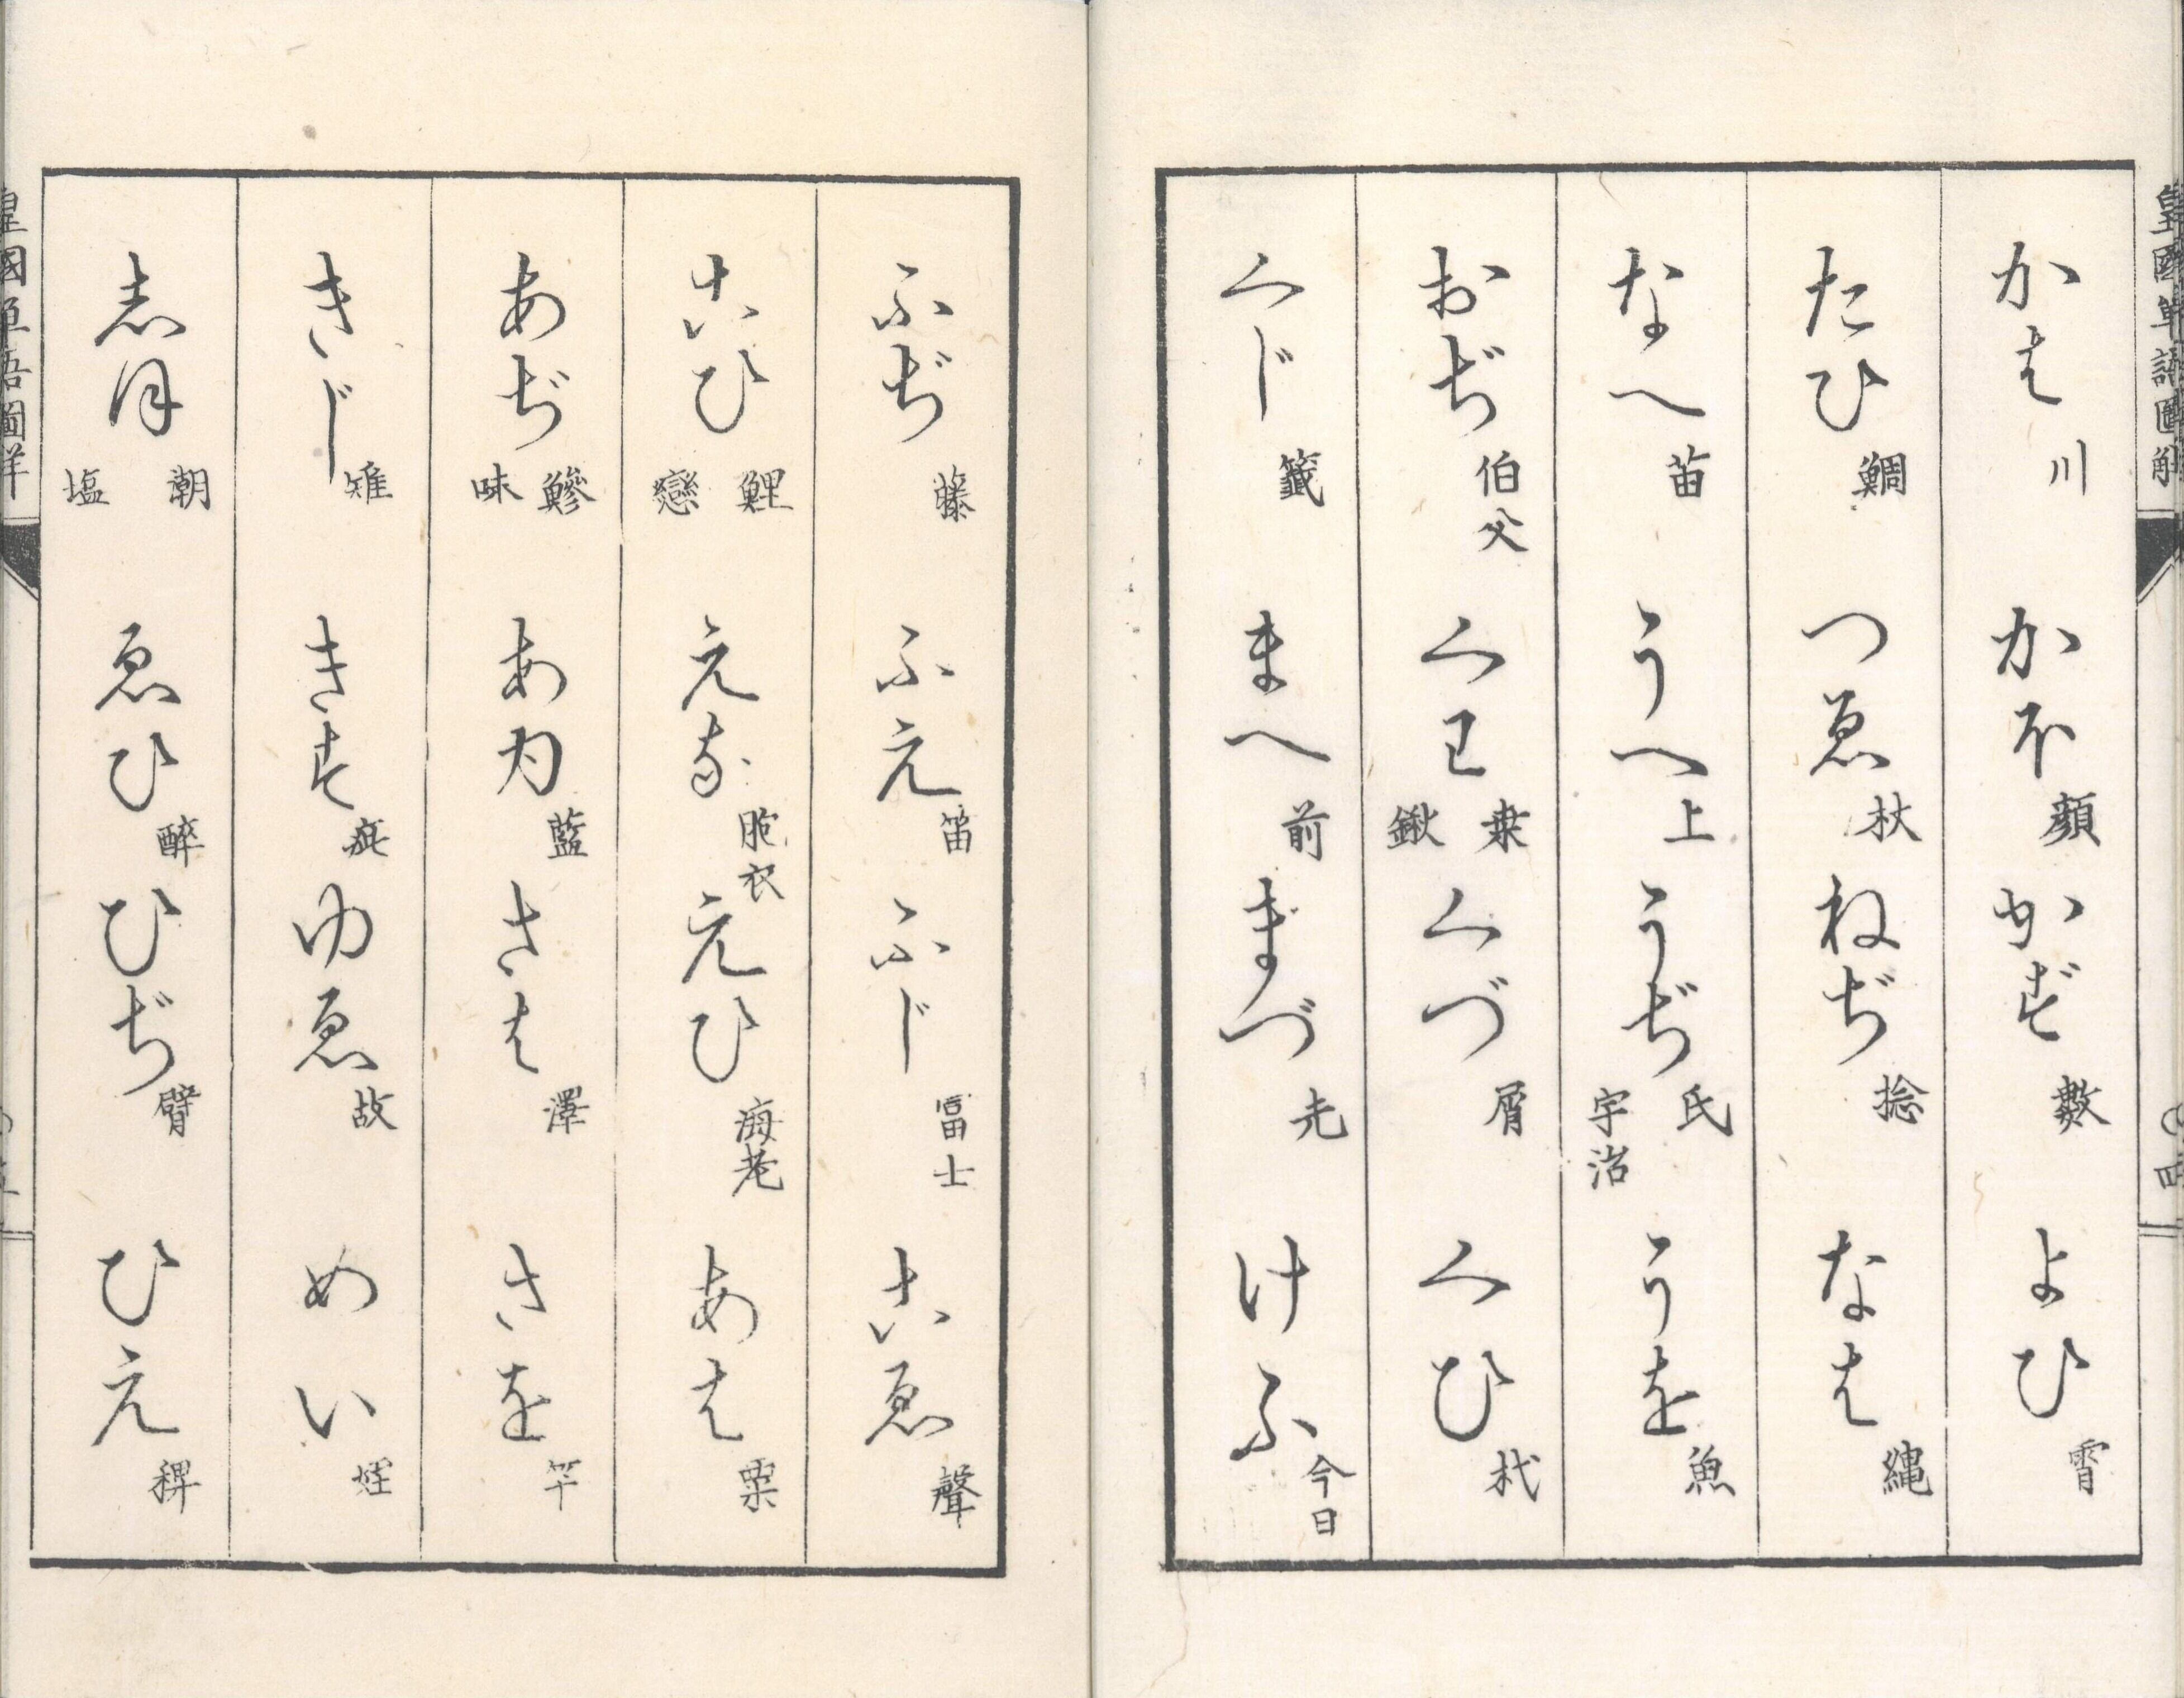 皇國單語圖解
かは 川 かほ 顏 かず 數 よひ 宵
たひ 鯛 つゑ 杖 ねぢ 捻 なは 繩
なへ 苗 うへ 上 うぢ 氏 宇治 うを 魚
おぢ 伯父 くわ 桒 鍬 くづ 屑 くひ 杙
くじ 籤 まへ 前 まづ 先 けふ 今日
ふぢ 藤 ふえ 笛 ふじ 冨士 こゑ 聲
こひ 鯉 戀 えな 胞衣 えひ 海老 あは 粟
あぢ 鰺 味 あゐ 藍 さは 澤 さを 竿
きじ 雉 きず 疵 ゆゑ 故 めい 姪
志ほ 潮 塩 ゑひ 醉 ひぢ 臂 ひえ 稗